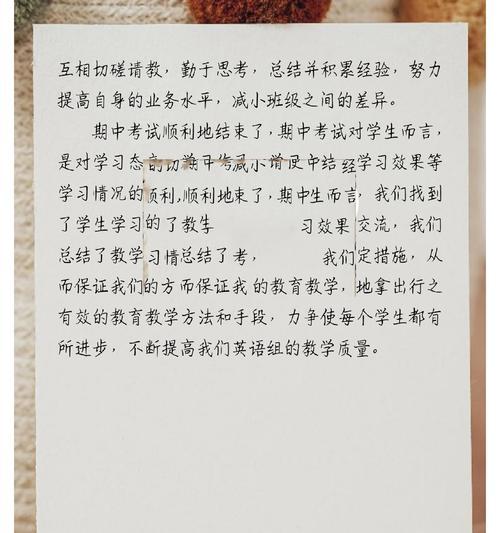 互相切磋请教，勤于思考，总结并积累经验，努力
提高自身的业务水平，减小班级之间的差异。
期中考试顺利地结束了，期中考试对学生而言，
是对学习态 减小 经学习效果等
学习情况的顺利,顺利地束了，期中生而言，我们找到
了学生学习的了教 习效果 交流，我们
总结了教学习情总结了考， 我们定措施，从
而保证我们的方而保证我 的教育教学，地拿出行之
有效的教育教学方法和手段，力争使每个学生都有
所进步，不断提高我们英语组的教学质量。